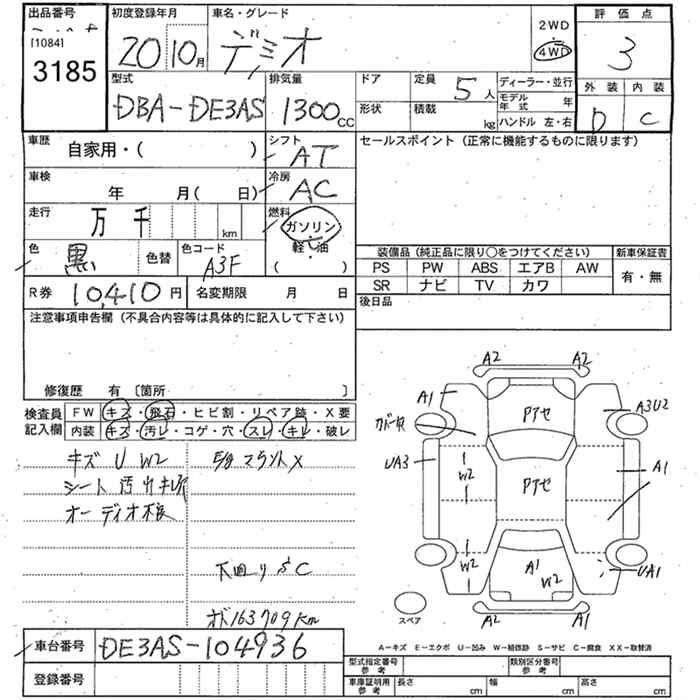 出品番号 初度登録年月 車名・グレード 2WD 評価点
[1084] 20 10月 デミオ 4WD 3
3185
型式 排気量 ドア 定員 5人 ディーラー・並行 外装 内装
DBA-DE3AS 1300cc 形状 積載 kg モデル年式 年 D C
ハンドル 左・右
車歴 自家用・( ) シフト AT セールスポイント (正常に機能するものに限ります)
車検 年 月( 日) 冷房 AC
走行 万 千 km 燃料 ガソリン
軽・油
( )
色 黒 色替 色コード A3F
装備品(純正品に限り○をつけてください) 新車保証書
PS PW ABS エアB AW 有・無
SR ナビ TV カワ
R券 10,410円 名変期限 月 日 後日品
注意事項申告欄(不具合内容等は具体的に記入して下さい)
修復歴 有 〔箇所 〕
検査員 FW キズ・飛石・ヒビ割・リペア跡・X要
記入欄 内装 キズ・汚レ・コゲ・穴・スレ・キレ・破レ
キズ U W2
シート汚レキレ
オーディオ不良
E/g マウントX
下回りSC
オド163709km
A2 A2
A1 Pアセ A3U2
カバー欠
UA3 W2 Pアセ A1
W2 A1 W2 UA1
A2 A1
スペア
A-キズ E-エクボ U-凹み W-補修跡 S-サビ C-腐食 XX-取替済
車台番号 DE3AS-104936
登録番号
型式指定番号 参考 類別区分番号 参考
車庫証明用 参考 長さ cm 幅 cm 高さ cm